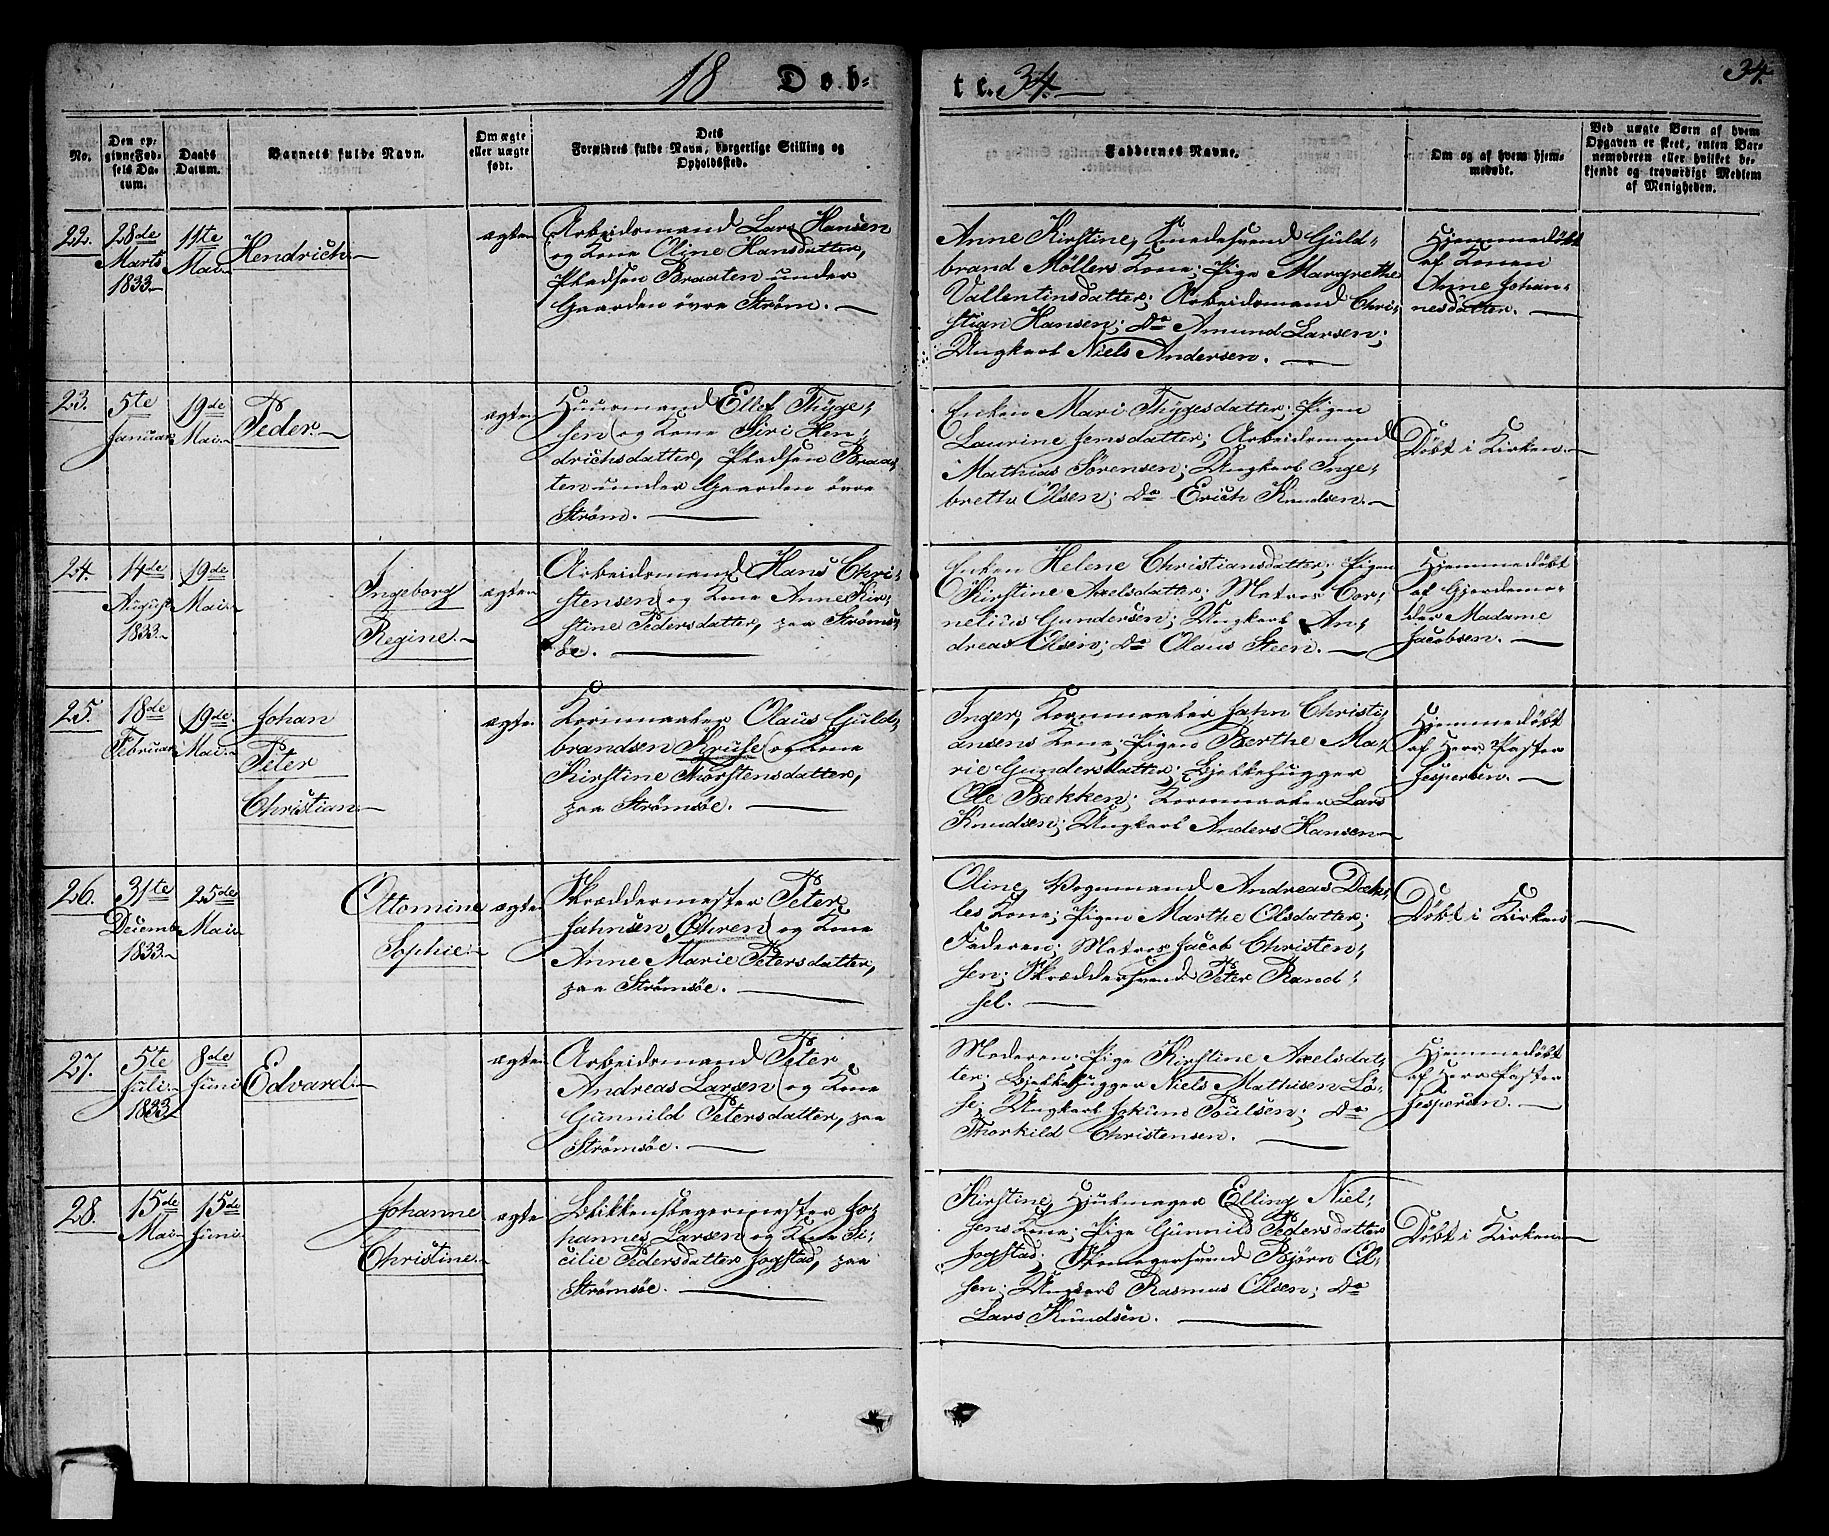 18 Døb-
te. 34.
34.
No.
Den op-
givne Fød-
sels Da-
tum.
Daabs
Datum.
Barnets fulde Navn.
Om ægte
eller uægte
født.
Dets
Forældres fulde Navn, borgerlige Stilling og
Opholdssted.
Faddernes Navne.
Om og af hvem hjem-
medøbt.
Ved uægte Børn af hvem
Opgaven er skeet, enten Bar-
nemoderen eller hvilket be-
kjendt og troværdigt Medlem
af Menigheden.
22.
28de
Marts
1833.
11te
Mai
Hendrich
ægte
Arbeidsmand Lars Hansen
og Kone Oline Hansdatter,
Pladsen Braaten under
Gaarden övre Ström.
Anne Kirstine, Smedesvend Guld-
brand Møllers Kone; Pige Margrethe
Vallentinsdatter; Arbeidsmand Chri-
stian Hansen; do Amund Larsen;
Ungkarl Niels Andersen.
Hjemmedøbt
af Konen
Anne Johan-
nesdatter.
23.
5te
Januar
19de
Mai
Peder.
ægte
Huusmand Ellef Thyge-
sen og Kone Siri Hen-
drichsdatter, Pladsen Braa-
ten under Gaarden övre
Ström.
Enken Mari Thygesdatter; Pigen
Laurine Jensdatter; Arbeidsmand
Mathias Sörensen; Ungkarl Inge-
breth Olsen; do Erich Knudsen.
Döbt i Kirken.
24.
14de
August
1833.
19de
Mai
Ingeborg
Regine.
ægte
Arbeidsmand Hans Chri-
stensen og Kone Anne Kir-
stine Pedersdatter, paa Strøms-
öe.
Enken Helene Christiansdatter; Pigen
Kirstine Axelsdatter; Matros Cor-
nelius Gundersen; Ungkarl An-
dreas Olsen; do Olaus Steen.
Hjemmedöbt
af Gjordemo-
der Madame
Jacobsen.
25.
18de
Februar
19de
Mai
Johan
Peter
Christian
ægte
Kornmaaler Olaus Guld-
brandsen Kruse og Kone
Kirstine Thorstensdatter,
paa Strömsöe.
Inger, Kornmaaler Jahn Christi-
ansens Kone; Pigen Berthe Ma-
rie Gundersdatter; Bjelkehugger
Ole Bækken; Kornmaaler Lars
Knudsen; Ungkarl Anders Hansen
Hjemmedöbt
af Herr Pastor
Jespersen.
26.
31te
Decemb.
1833.
25de
Mai
Ottomine
Sophie.
ægte
Skræddermester Peter
Jahnsen Öhren og Kone
Anne Marie Petersdatter,
paa Strömsöe.
Oline, Vognmand Andreas Dæh-
les Kone; Pigen Marthe Olsdatter;
Faderen; Matros Jacob Christen-
sen; Skræddersvend Peter Rand-
sel.
Döbt i Kirken
27.
5te
Juli
1833
8de
Juni
Edvard.
ægte
Arbeidsmand Peter
Andreas Larsen og Kone
Gunnild Petersdatter, paa
Strömsöe.
Moderen; Pige Kirstine Axelsdat-
ter; Bjelkehugger Niels Mathisen Lö-
se; Ungkarl Jokum Poulsen; do
Thorkild Christensen.
Hjemmedöbt
af Herr Pastor
Jespersen.
28.
15de
Mai
15de
Juni
Johanne
Christine
ægte
Blikkenslagermester Jo-
hannes Larsen og Kone Si-
cilie Pedersdatter Jogstad, paa
Strömsöe.
Kirstine, Hjulmager Elling Niel-
sens Kone; Pige Gunnild Pedersdatter
Jogstad; Skomagersvend Björn Ol-
sen; Ungkarl Rasmus Olsen; do
Lars Knudsen.
Döbt i Kirken